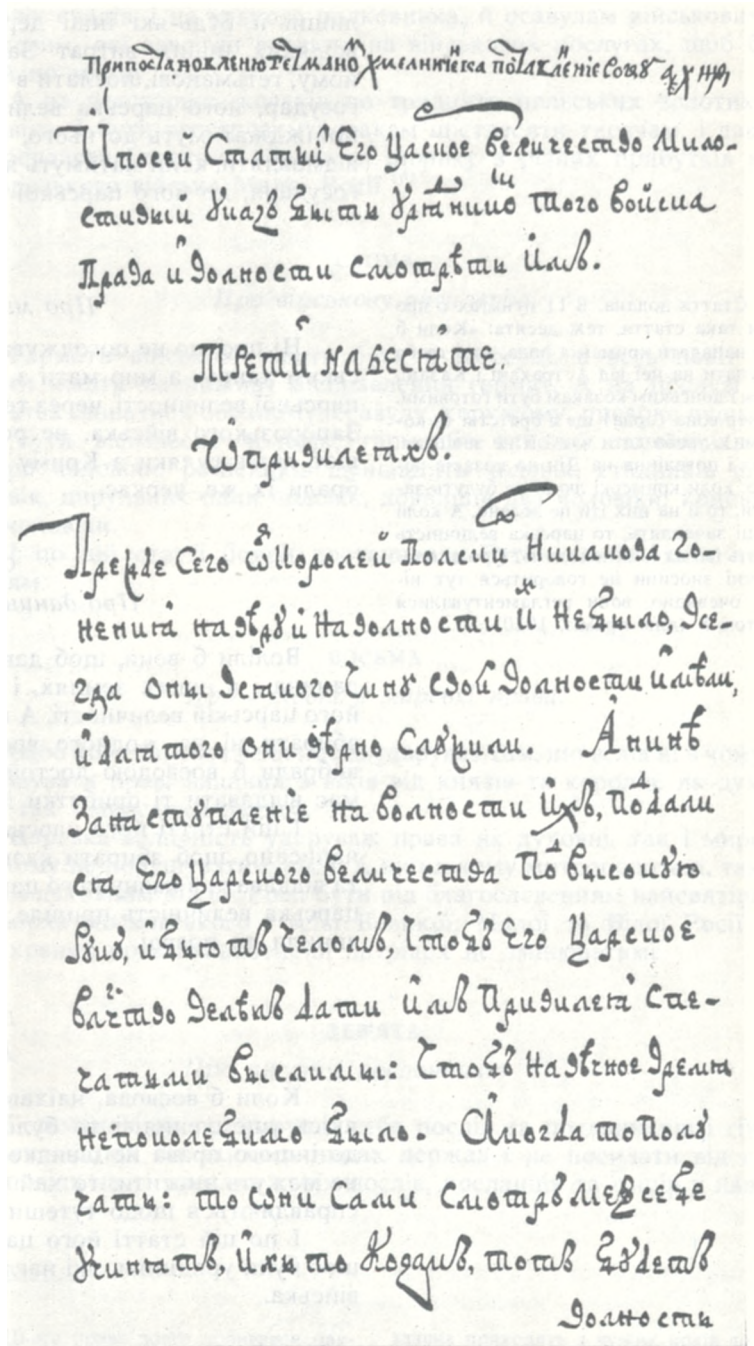 При постановленю гетмано Хмелниска
И по сей Статьи Его Царское Величество Мило-
стивый указъ быти учинило того войска
Права и волности смотрѣти имъ.
Третий надесяте.
Ѿ привилегахъ.
Прежде Сего ѿ Королей Полских Никакова Го-
нения на вѣру и На волности их не было, все-
гда они всякого чину свои волности имѣли,
и для того они вѣрно служили. А нинѣ
За наступление на волности ихъ, Подали
ся Его Царского величества Подъ высокую
руку, и бьютъ челомъ, чтобъ его Царское
влчтво велѣлъ дати имъ Привилеи с пе-
чатьми вислими, чтобъ на вѣчное время
непоколебимо было. А когда то Полу
чатъ: то они сами смотръ межъ себе
учинятъ, и кто Козакъ, тотъ будетъ
волности